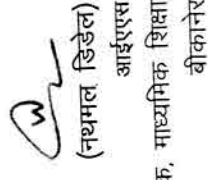 (नथमल डिडेल)
आईएएस
क, माध्यमिक शिक्षा
बीकानेर